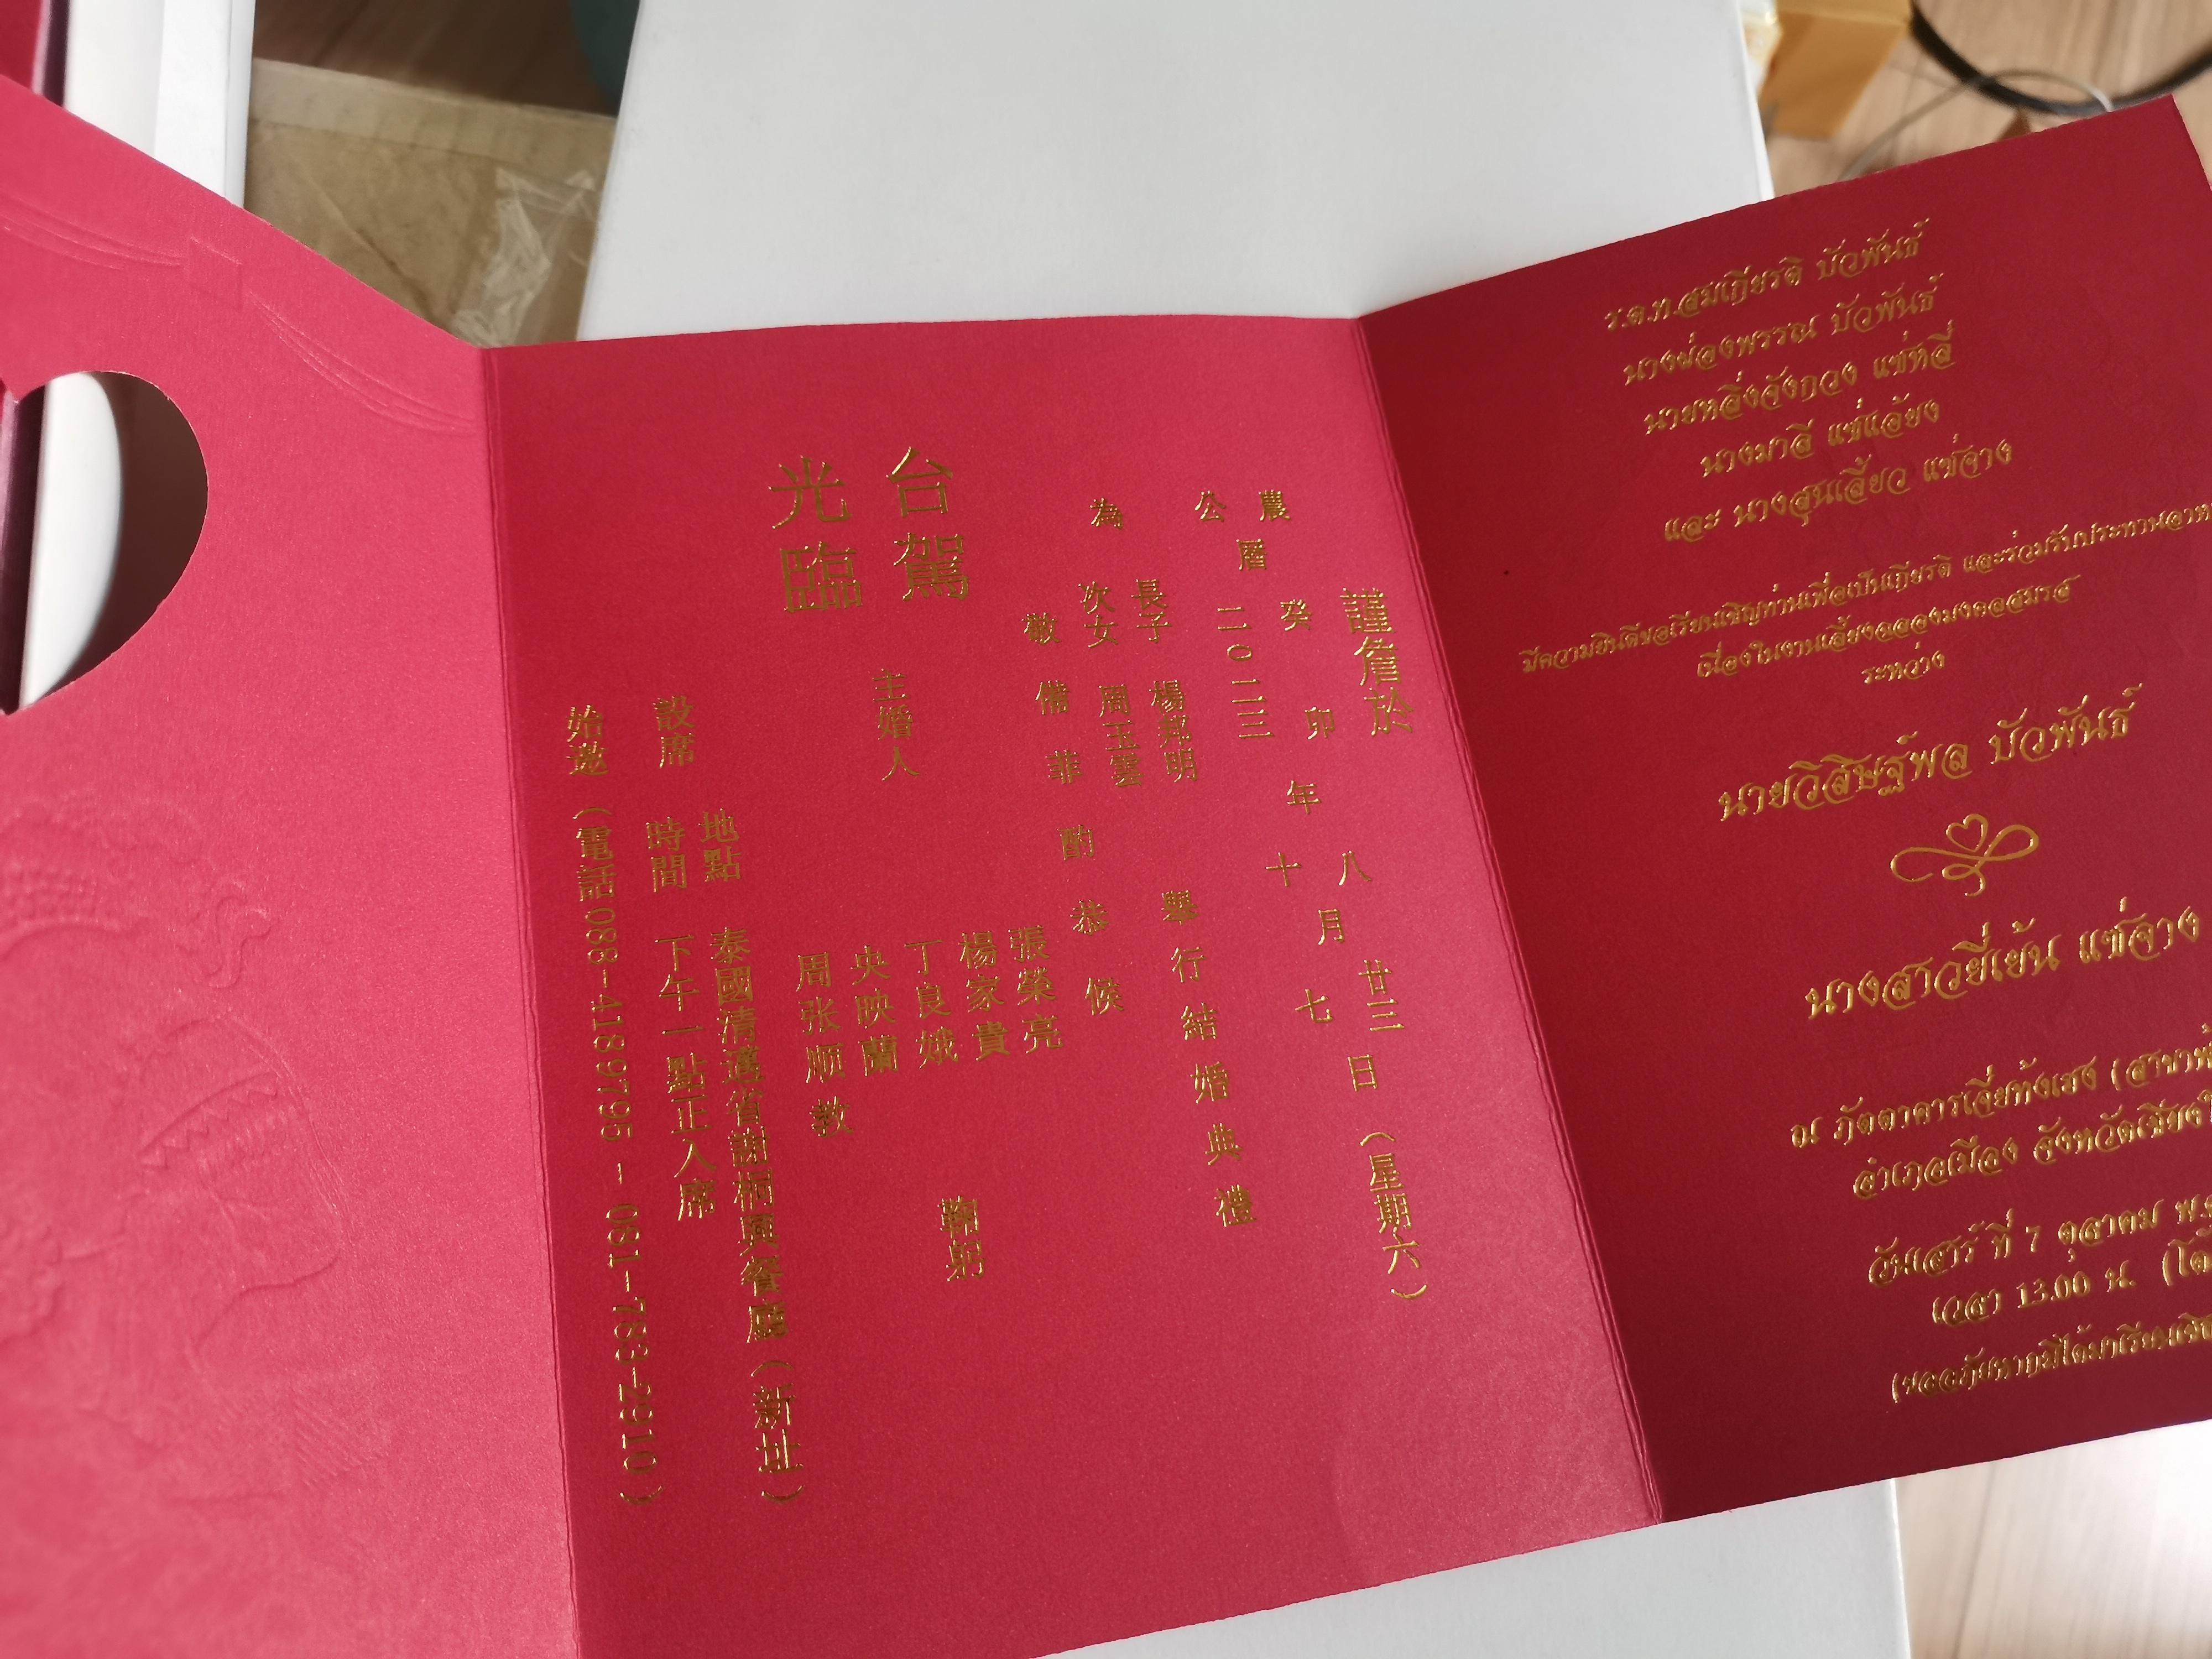 謹詹於
農曆 癸卯年八月廿三日（星期六）
公曆 二0二三年十月七日
為
長子 楊超明
次女 周玉雲
舉行結婚典禮
敬備菲酌恭候
台駕
光臨
主婚人
張榮亮
楊家貴
丁良娥
央映蘭
周张顺教
鞠躬
設席
地點 泰國清邁省謝桐興餐廳（新址）
時間 下午一點正入席
始邀（電話088-4189795 - 081-783-2910）
ร.ต.ท.สมเกียรติ บัวพันธ์
นางผ่องพรรณ บัวพันธ์
นายหลิ่งจังกวง แซ่หลี่
นางมาลี แซ่แอ้ยง
และ นางสุนเลี้ยว แซ่จาง
มีความยินดีขอเรียนเชิญท่านเพื่อเป็นเกียรติ และร่วมรับประทานอาหา
เนื่องในงานเลี้ยงฉลองมงคลสมรส
ระหว่าง
นายวิสิษฐ์พล บัวพันธ์
นางสาวยี่เย้น แซ่จาง
ณ ภัตตาคารเจี่ยท้งเฮง (สาขา
อำเภอเมือง จังหวัดเชียงใ
วันเสาร์ ที่ 7 ตุลาคม พ.ศ
เวลา 13.00 น. (โต๊
(ขออภัยหากมิได้มาเรียนเชิญ